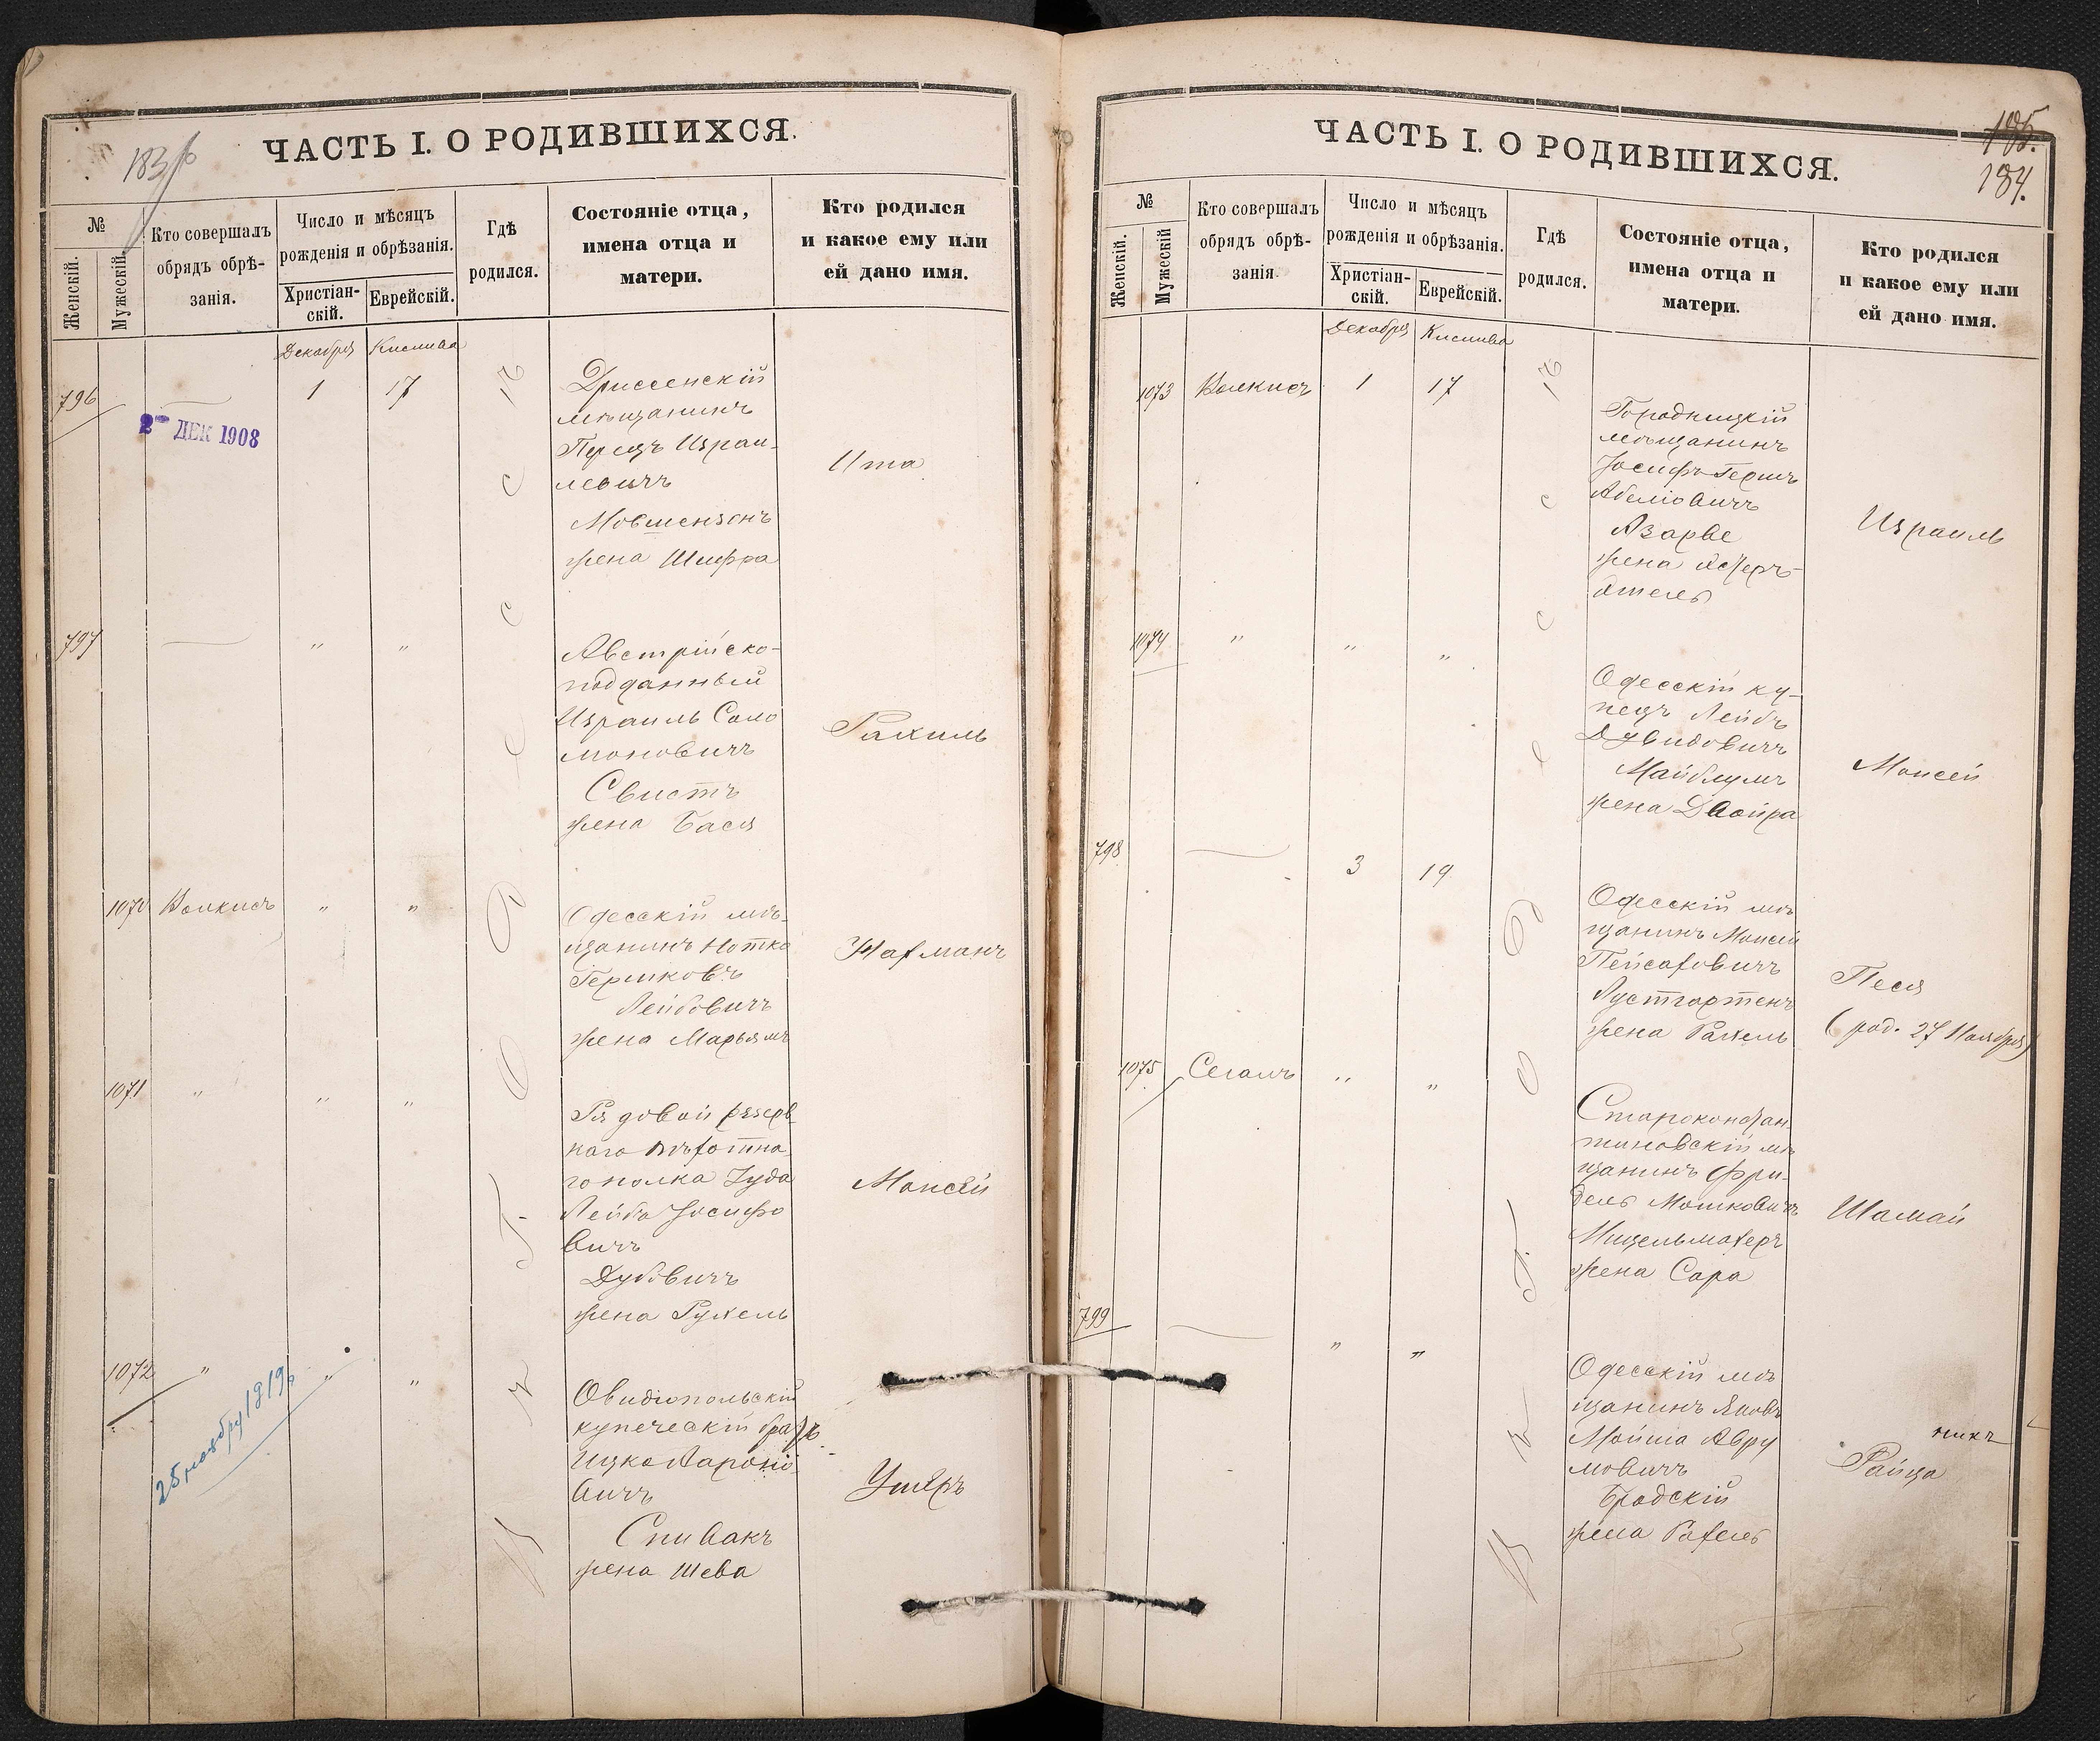 183 об
ЧАСТЬ I. О РОДИВШИХСЯ.
№
Женскій.
Мужескій.
Кто совершалъ
обрядъ обрѣ-
занія.
Число и мѣсяцъ
рожденія и обрѣзанія.
Христіан-
скій.
Еврейскій.
Гдѣ
родился.
Состояніе отца,
имена отца и
матери.
Кто родился
и какое ему или
ей дано имя.
Декабря Кислива
796 1 17
2 ДЕК 1908
Дриссенскій
мѣщанинъ
Перецъ Израи-
левичъ
Мовшензонъ
жена Шифра
Ита
797 " "
Австрійско-
подданный
Израиль Соло
моновичъ
Свистъ
жена Бася
Рахиль
1070 Волкисъ " "
Одесскій мѣ-
щанинъ Нотка
Гершковъ
Лейбовичъ
жена Марьямъ
Нахманъ
1071 " " "
Рядовой резерв
наго пѣхотна
го полка Іуда
Лейба Іосифо
вичъ
Дубовичъ
жена Рухель
Моисей
1072 " " "
25 ноября 1919
Овидіопольскій
купеческій братъ
Ицко Аароно
вичъ
Спивакъ
жена Шева
Ушеръ
въ Одессѣ
185.
184.
ЧАСТЬ I. О РОДИВШИХСЯ.
№
Женскій.
Мужескій
Кто совершалъ
обрядъ обрѣ-
занія.
Число и мѣсяцъ
рожденія и обрѣзанія.
Христіан-
скій.
Еврейскій.
Гдѣ
родился.
Состояніе отца,
имена отца и
матери.
Кто родился
и какое ему или
ей дано имя.
Декабря Кислива
1073 Волкисъ 1 17
Городницкій
мѣщанинъ
Іосифъ Гершъ
Абеліовичъ
Азарве
жена Эстеръ-
Этель
Израиль
1074 " " "
Одесскій ку-
пецъ Лейбъ
Дувидовичъ
Майблумъ
жена Двойра
Моисей
798 3 19
Одесскій мѣ
щанинъ Моисей
Пейсаховичъ
Лустгартенъ
жена Рахель
Песя
(род. 27 Ноября)
1075 Сегалъ " "
Староконстан
тиновскій мѣ
щанинъ Фри-
дель Мошковичъ
Мицельмахеръ
жена Сара
Шамай
799 " "
Одесскій мѣ
щанинъ Яковъ
Мойша Авру
мовичъ
Бродскій
жена Рахель
Райца
въ Одессѣ